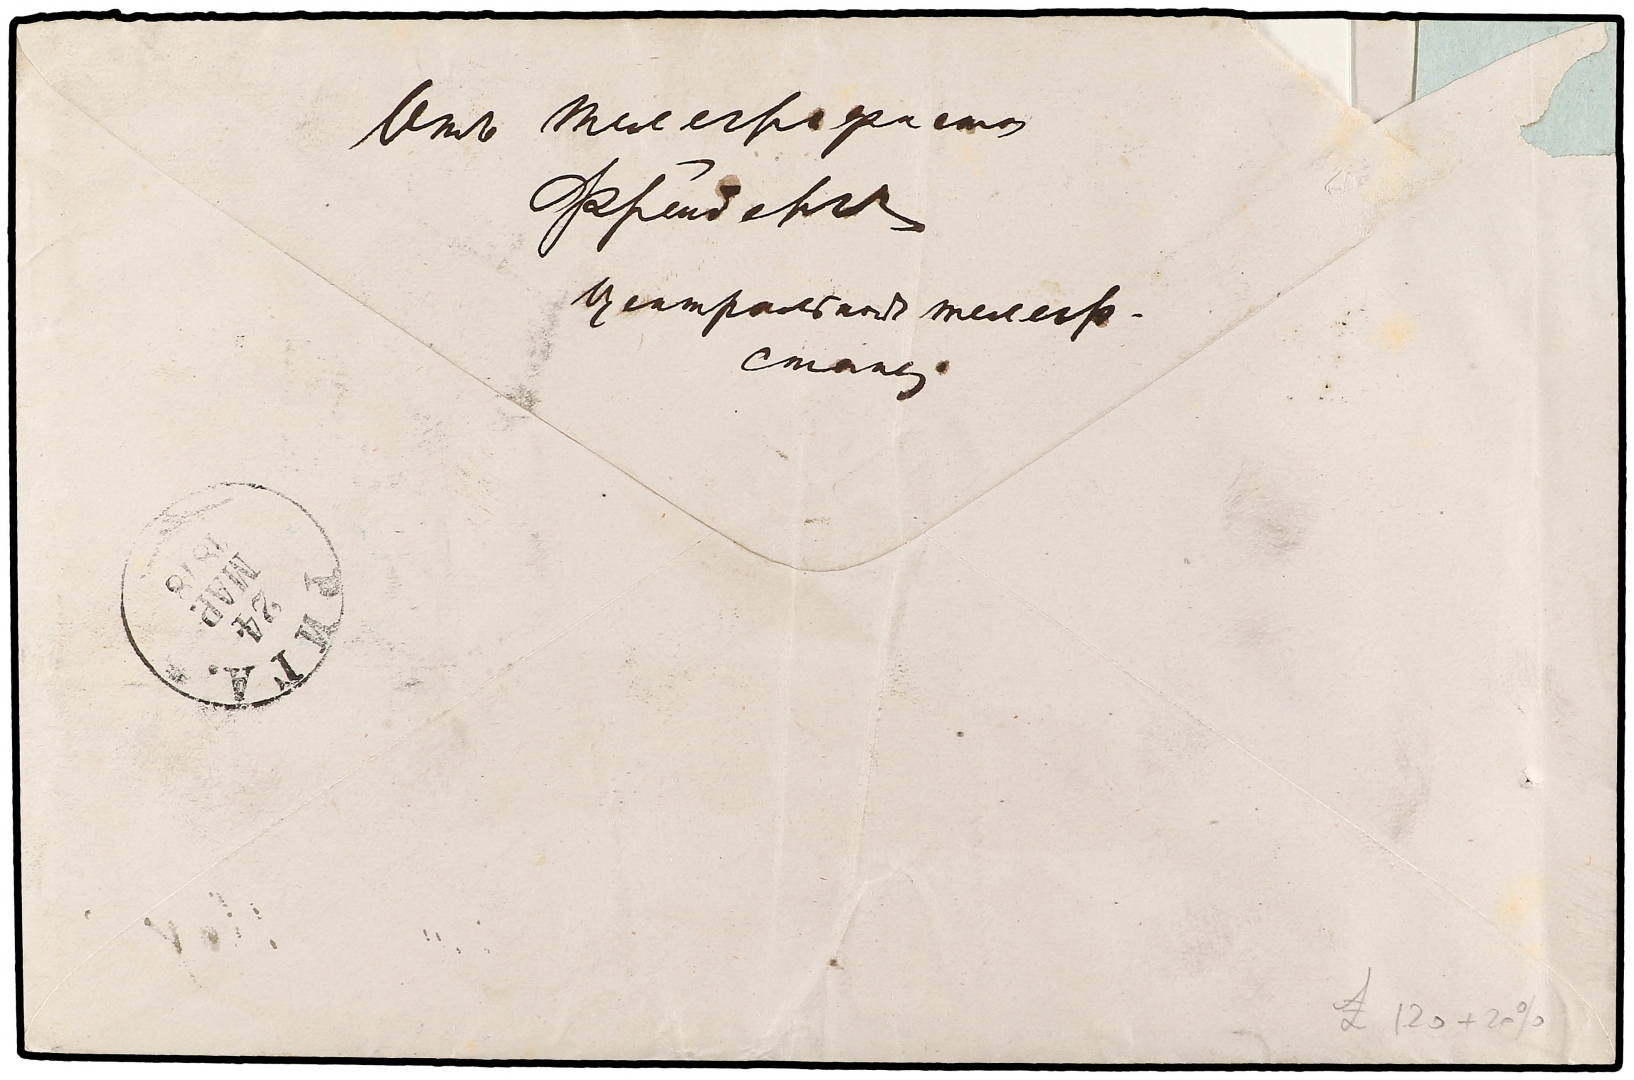 Отъ телеграфиста
Фрейберга
Центральной телегр.
станц.
РИГА.
24
МАР.
1878
£ 120 + 20%